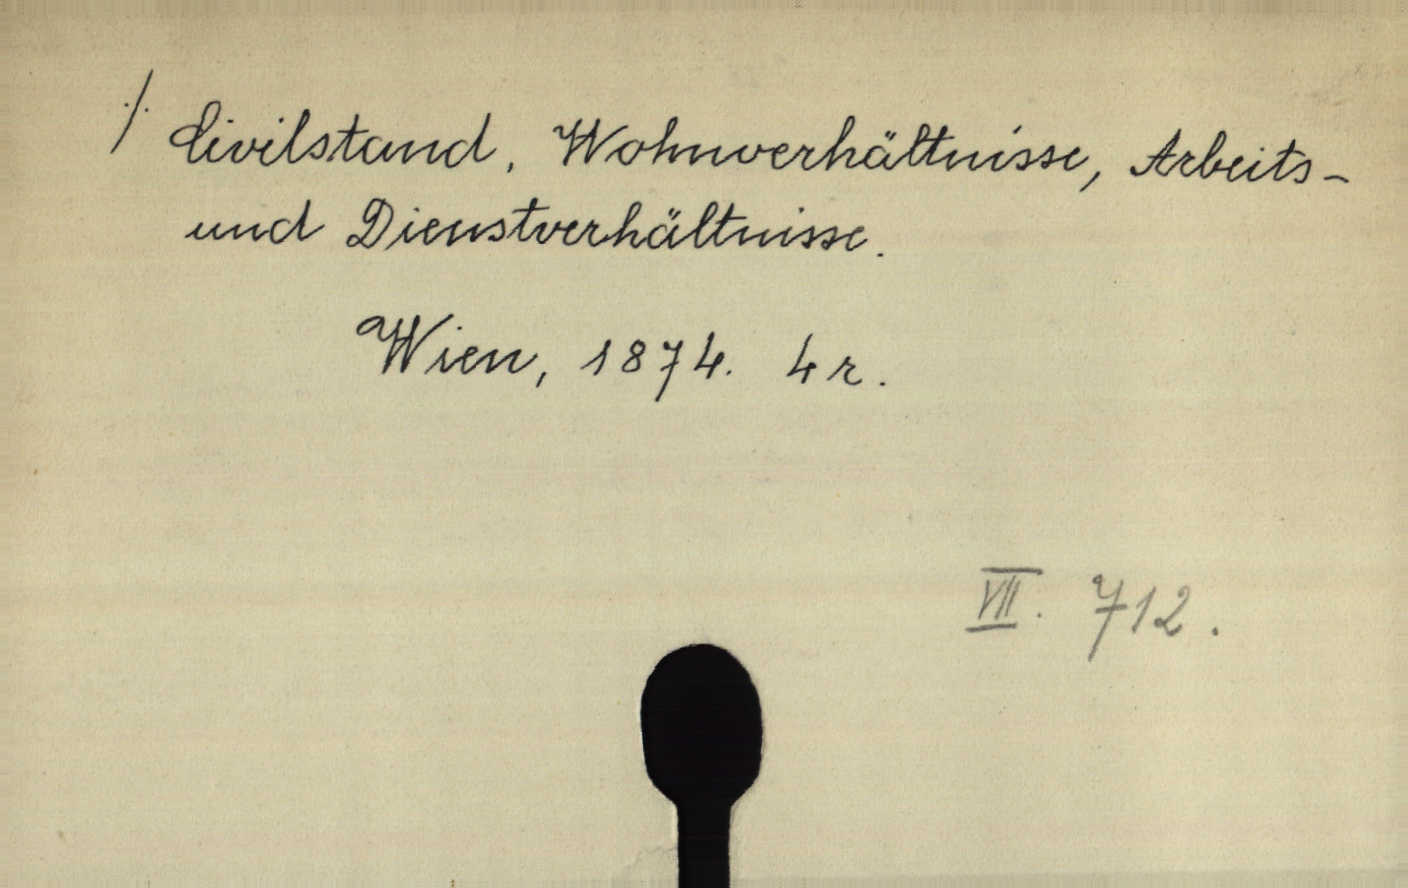 ./. Civilstand, Wohnverhältnisse, Arbeits-
und Dienstverhältnisse.
Wien, 1874. 4r.
VIII. 712.